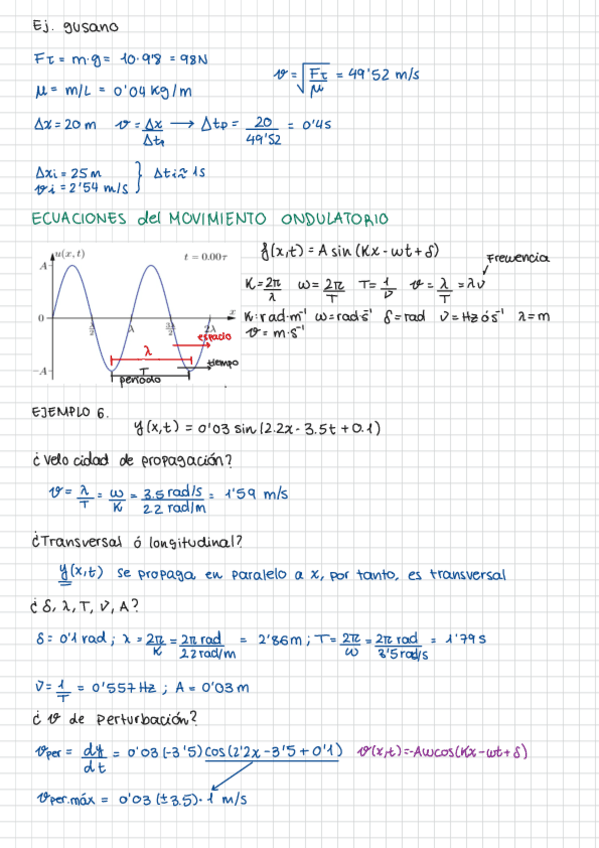 Ej. gusano
Fτ = m·g = 10·9'8 = 98N
v = √Fτ/μ = 49'52 m/s
μ = m/L = 0'04 kg/m
Δx = 20 m v = Δx/Δtp → Δtp = 20/49'52 = 0'4s
Δxi = 25m
vi = 2'54 m/s } Δti ≈ 1s
ECUACIONES del MOVIMIENTO ONDULATORIO
u(x,t) t = 0.00τ
A
0
-A
λ/2 λ 3λ/2 2λ x
espacio
λ
tiempo
T
período
f(x,t) = A sin (Kx - ωt + δ)
Frewencia
K = 2π/λ ω = 2π/T T = 1/ν v = λ/T = λν
K: rad·m⁻¹ ω = rad·s⁻¹ δ = rad ν = Hz ó s⁻¹ λ = m
v = m·s⁻¹
EJEMPLO 6.
y(x,t) = 0'03 sin (2.2x - 3.5t + 0.1)
¿Velocidad de propagación?
v = λ/T = ω/K = 3.5 rad/s / 2.2 rad/m = 1'59 m/s
¿Transversal ó longitudinal?
y(x,t) se propaga en paralelo a x, por tanto, es transversal
¿ δ, λ, T, ν, A?
δ = 0'1 rad ; λ = 2π/K = 2π rad / 2.2 rad/m = 2'86m ; T = 2π/ω = 2π rad / 3'5 rad/s = 1'79s
ν = 1/T = 0'557 Hz ; A = 0'03 m
¿ v de perturbación?
vper = dy/dt = 0'03 (-3'5) cos (2'2x - 3'5 + 0'1) v(x,t) = -Aωcos(Kx - ωt + δ)
vper.máx = 0'03 (±3.5)·1 m/s